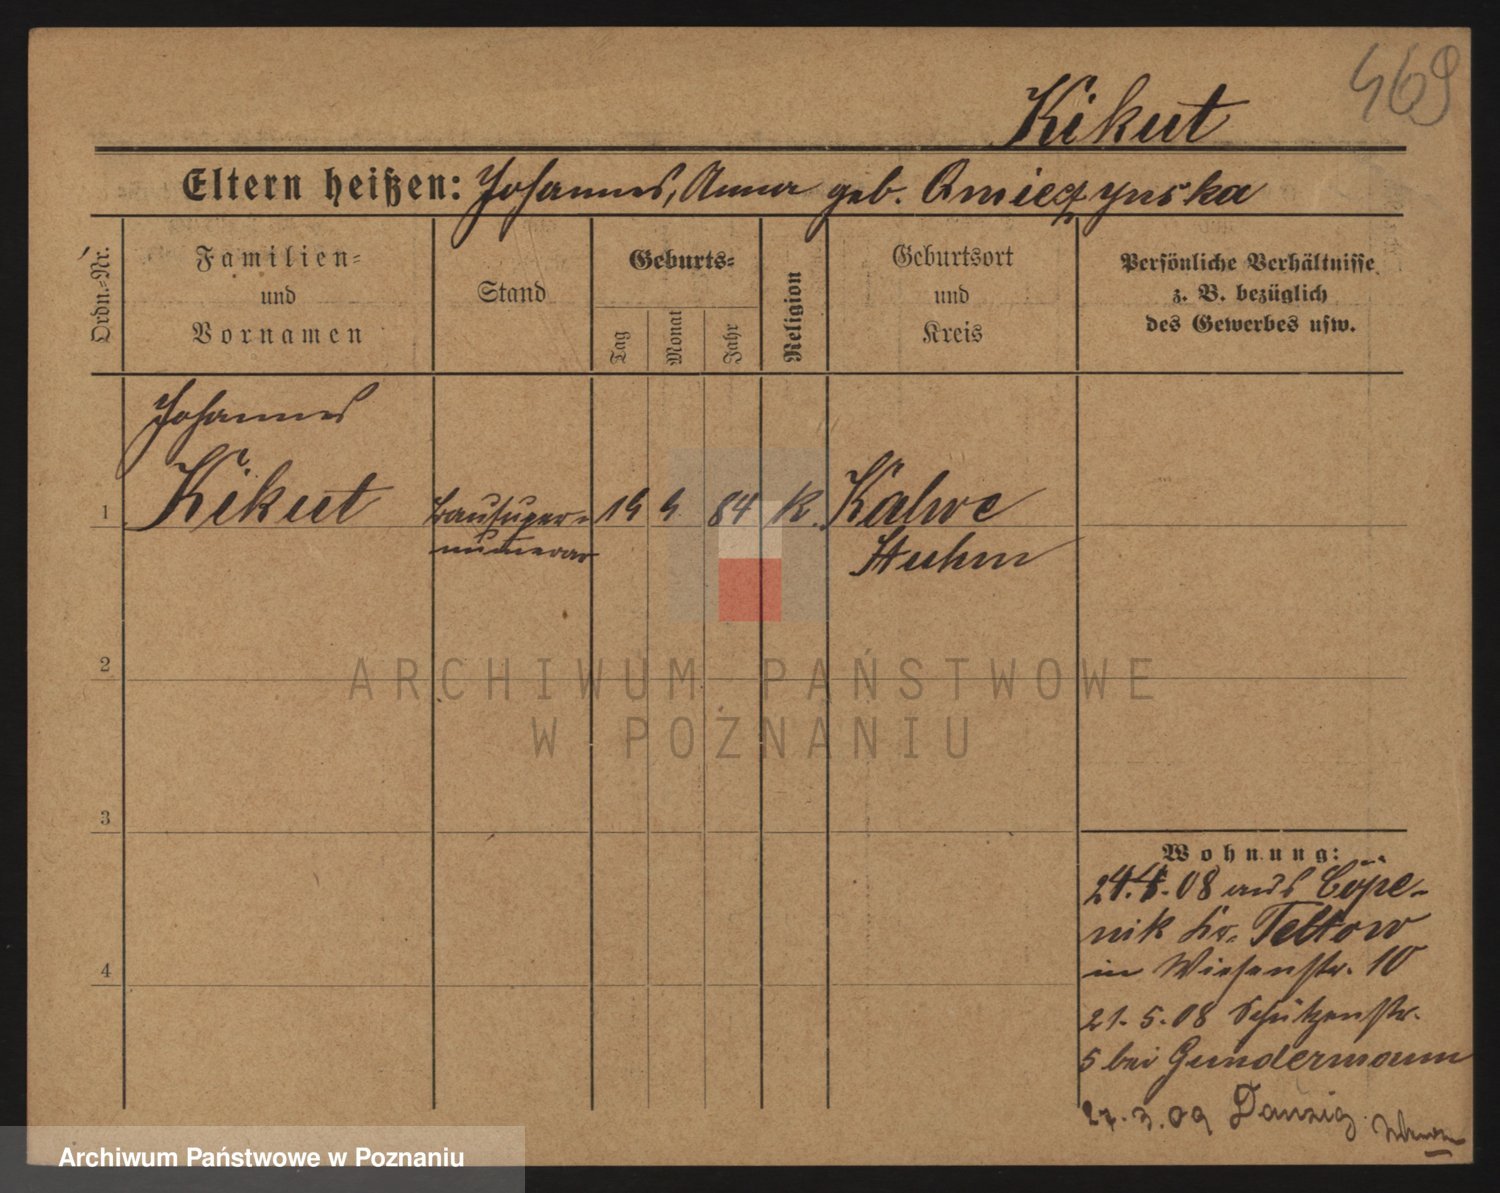 469
Kikut
Eltern heißen: Johannes, Anna geb. Omieczynska
Ordn.-Nr.
Familien-
und
Vornamen
Stand
Geburts-
Tag
Monat
Jahr
Religion
Geburtsort
und
Kreis
Persönliche Verhältnisse
z. B. bezüglich
des Gewerbes usw.
Johannes
1 Kikut Bausuper- 84 K. Kalwe
numerar Stuhm
2
3
4
ARCHIWUM PAŃSTWOWE
W POZNANIU
Wohnung:
24.4.08 aus Cöpe-
nik Kr. Teltow
in Wiesenstr. 10
21.5.08 Schützenstr.
5 bei Gundermann
27.3.09 Danzig
Archiwum Państwowe w Poznaniu